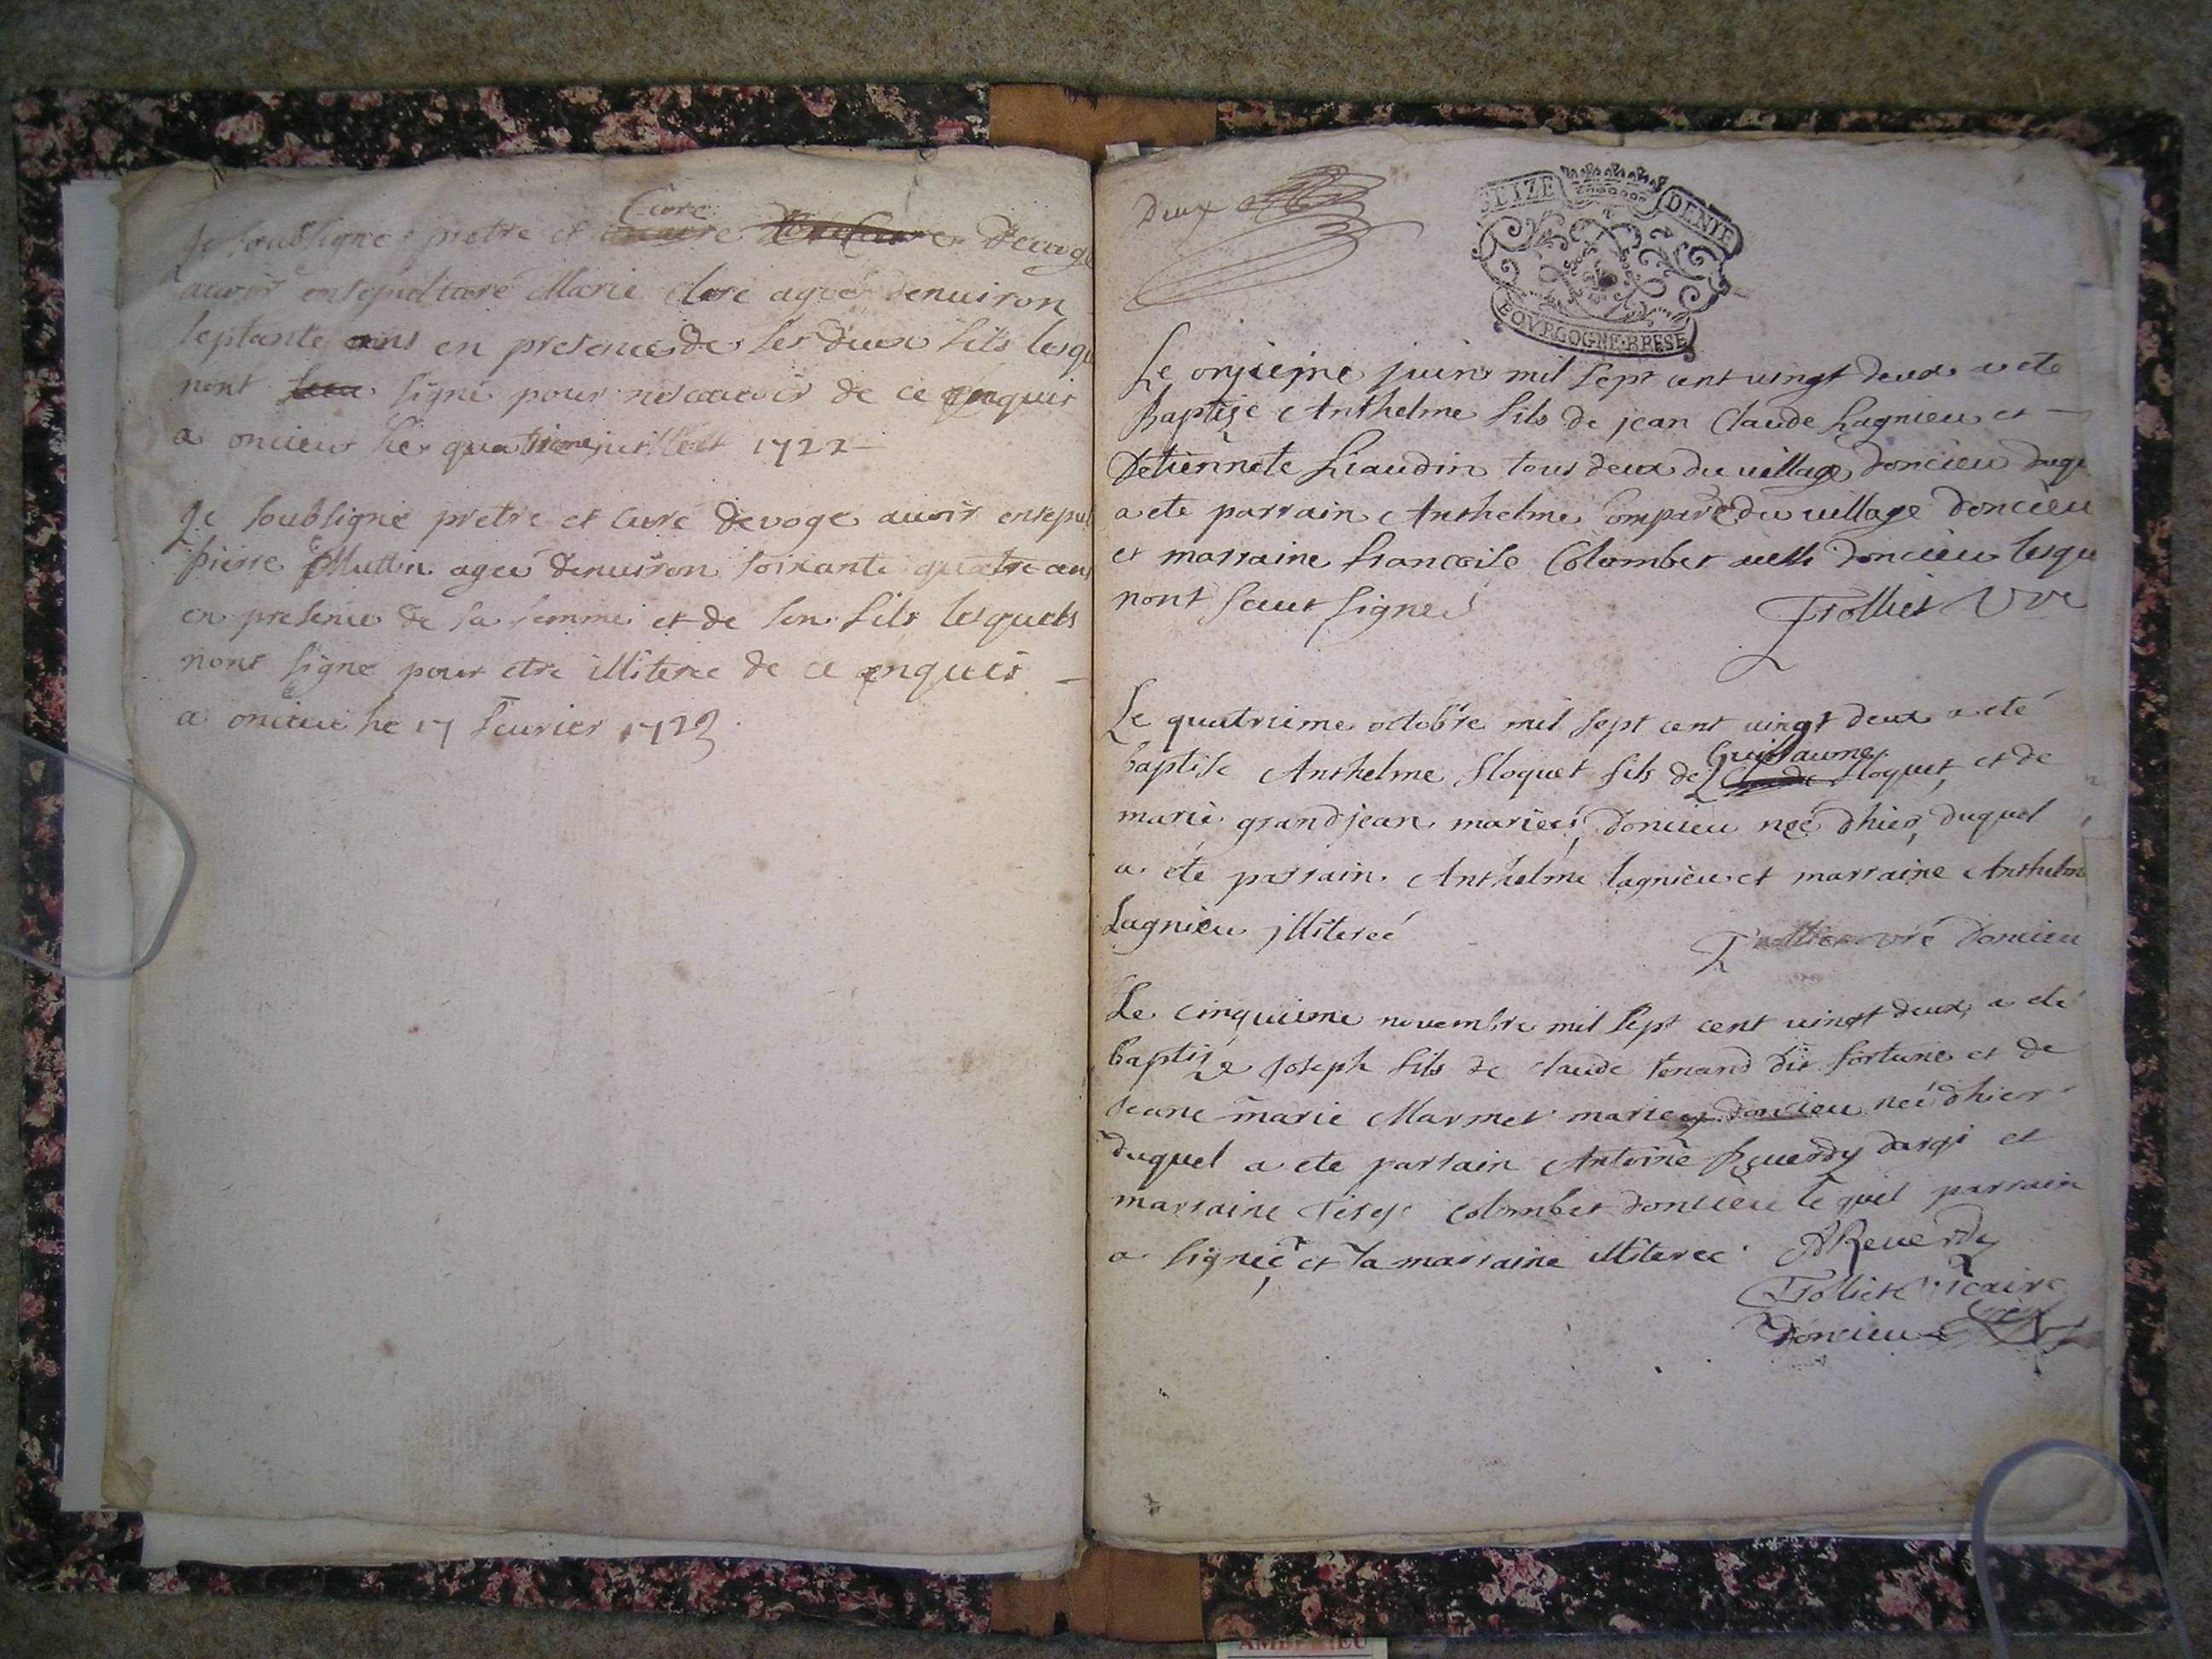 Curé
Je soubsigne pretre et devoge
avoir ensepulturé Marie Clere ageé denuiron
septante ans en presence de ses deux fils lesqu
nont signé pour ne scavoir de ce enquis
a oncieu le quatrieme juillet 1722
Je soubsigne pretre et curé devoge avoir ensepul
pierre Muttin ageé denuiron soixante quatre ans
en presence de sa femme et de son fils lesquels
nont signe pour etre illiteree de ce enquis
a oncieu le 17 feurier 1723
Deux
SEIZE DENIE
BOVRGOGNE·BRESE
Le onzieme juin mil sept cent vingt deux a ete
baptize Anthelme fils de jean Claude Lagnieu et
detiennete Liaudin tous deux du village doncieu duqu
a ete parrain Anthelme compare du village doncieu
et marraine francoise Colombet doncieu lesqu
nont sceut signeé
Trolliet Vre
Le quatrieme octobre mil sept cent vingt deux a eté
Guillaume
baptise Anthelme floquet fils de floquet et de
marie grandjean marieés doncieu neé dhier duquel
a ete parrain Anthelme lagnieu et marraine Anthelme
Lagnieu illitereé
Trolliet vré doncieu
Le cinquieme novembre mil sept cent vingt deux a eté
baptizé joseph fils de claude tenand dit fortune et de
jeane marie Marmet marieex doncieu neé dhier
duquel a ete parrain Antoine Reuerdy dargi et
marraine colombet doncieu le quel parrain
a signeé et la marraine illiteree A Reuerdy
Trolliet vicaire
doncieu
AMBERIEU